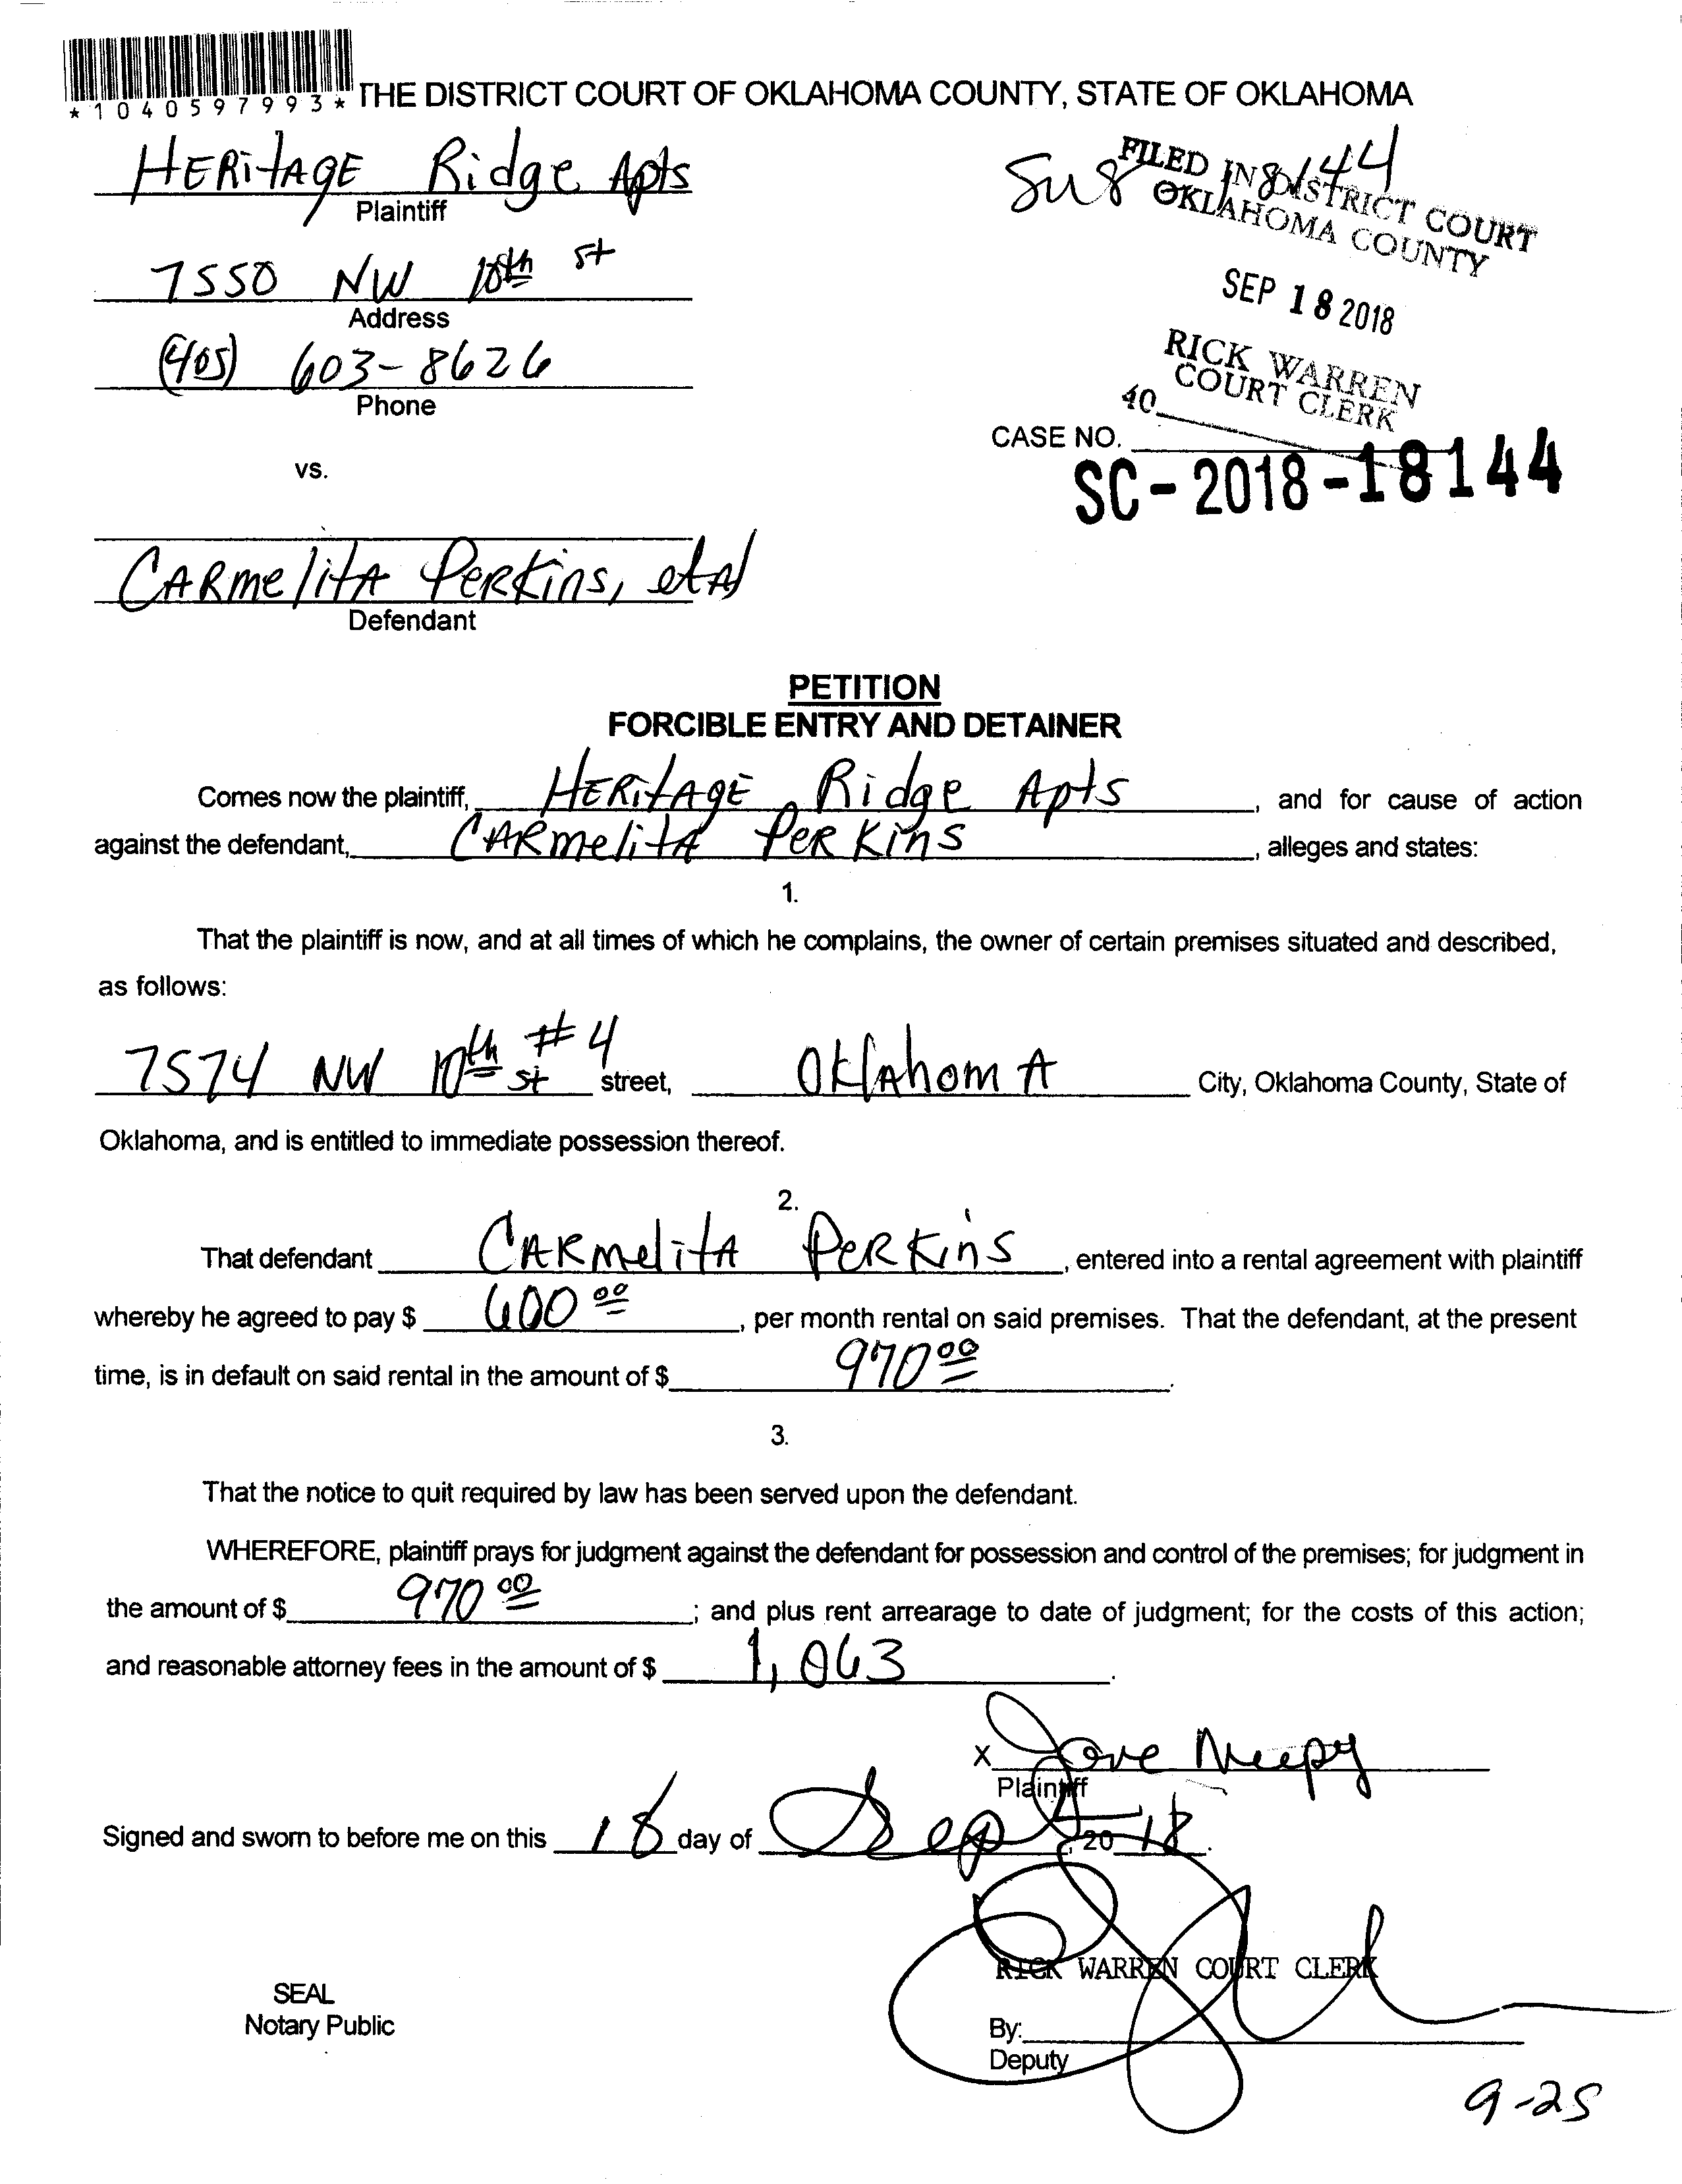 *1040597993*
THE DISTRICT COURT OF OKLAHOMA COUNTY, STATE OF OKLAHOMA
HERitAGE Ridge Apts
Plaintiff
18144
FILED IN DISTRICT COURT
OKLAHOMA COUNTY
7550 NW 10th st
Address
SEP 18 2018
(405) 603-8626
Phone
RICK WARREN
COURT CLERK
40
CASE NO.
SC-2018-18144
vs.
CARmelitA PERKins, etAl
Defendant
PETITION
FORCIBLE ENTRY AND DETAINER
Comes now the plaintiff, HERitAGE Ridge Apts, and for cause of action
against the defendant, CARmelitA PERKinS, alleges and states:
1.
That the plaintiff is now, and at all times of which he complains, the owner of certain premises situated and described,
as follows:
7574 NW 10th st #4 street, OklAhomA City, Oklahoma County, State of
Oklahoma, and is entitled to immediate possession thereof.
2.
That defendant CARmelitA PERKinS, entered into a rental agreement with plaintiff
whereby he agreed to pay $ 600 00, per month rental on said premises. That the defendant, at the present
time, is in default on said rental in the amount of $ 970 00.
3.
That the notice to quit required by law has been served upon the defendant.
WHEREFORE, plaintiff prays for judgment against the defendant for possession and control of the premises; for judgment in
the amount of $ 970 00; and plus rent arrearage to date of judgment; for the costs of this action;
and reasonable attorney fees in the amount of $ 1,063.
X
Plaintiff
Signed and sworn to before me on this 18 day of Sept, 20 18.
RICK WARREN COURT CLERK
SEAL
Notary Public
By:
Deputy
9-25